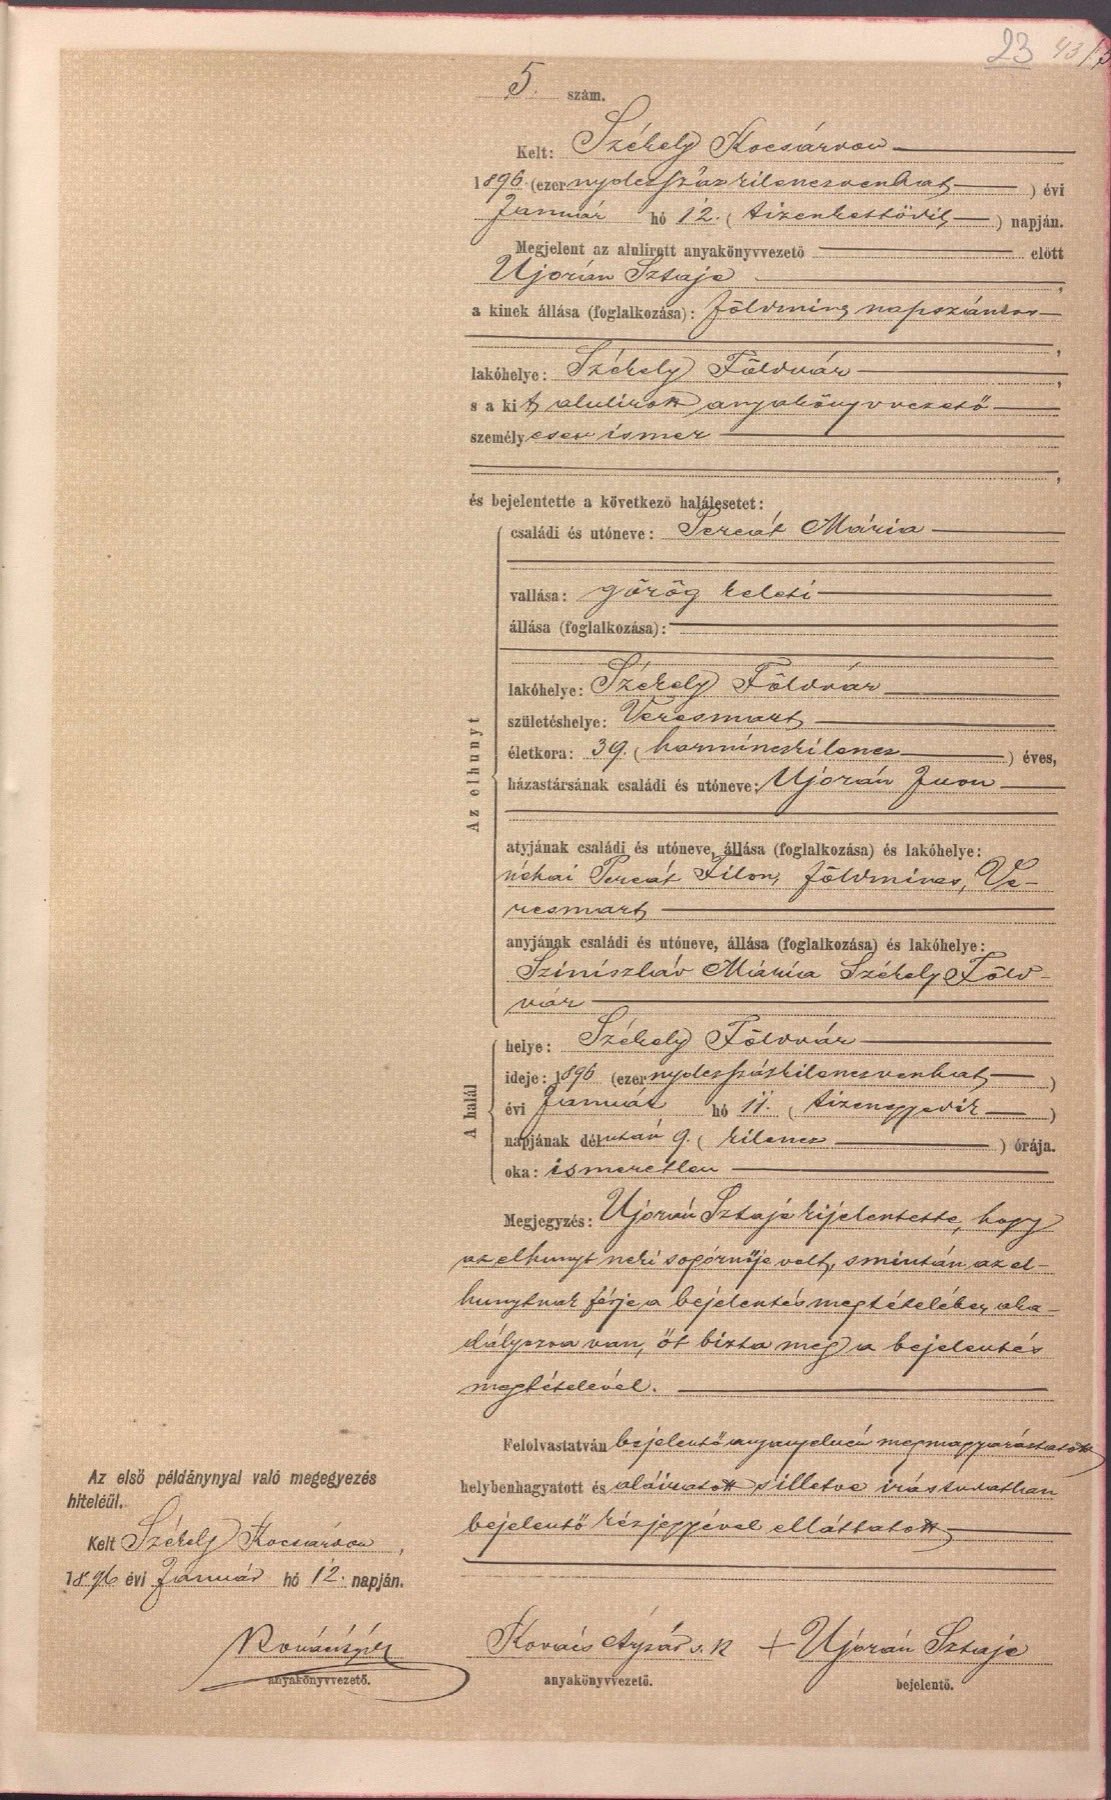 23 43/3
5. szám.
Kelt: Székely Kocsárdon
1896 (ezernyolczszázkilenczvenhat) évi
Január hó 12. (tizenkettődik) napján.
Megjelent az alulirott anyakönyvvezető előtt
Ujorán Sztaje
a kinek állása (foglalkozása): földmives napszámos,
lakóhelye: Székely Földvár,
s a kit alulirott anyakönyvvezető
személyesen ismer,
és bejelentette a következő halálesetet:
Az elhunyt
családi és utóneve: Percát Mária
vallása: görög keleti
állása (foglalkozása):
lakóhelye: Székely Földvár
születéshelye: Veresmart
életkora: 39. (harminczkilencz) éves,
házastársának családi és utóneve: Ujorán Juon
atyjának családi és utóneve, állása (foglalkozása) és lakóhelye:
néhai Percát Filon, földmives, Ve-
resmart
anyjának családi és utóneve, állása (foglalkozása) és lakóhelye:
Mária Székely Föld-
vár
A halál
helye: Székely Földvár
ideje: 1896 (ezernyolczszázkilenczvenhat)
évi Január hó 11. (tizenegyedik)
napjának délután 9. (kilencz) órája.
oka: ismeretlen
Megjegyzés: Ujorán Sztaje kijelentette, hogy
az elhunyt neki sógornője volt, s miután az el-
hunytnak férje a bejelentés megtételében aka-
dályozva van, őt bizta meg a bejelentés
megtételével.
Felolvastatván bejelentő anyanyelvén megmagyaráztatott
helybenhagyatott és aláiratott s illetve irástudatlan
bejelentő kézjegyével elláttatott
Az első példánynyal való megegyezés
hiteléül.
Kelt Székely Kocsárdon,
1896 évi Január hó 12. napján.
Kovács Árpád s. k. + Ujorán Sztaje
anyakönyvvezető. anyakönyvvezető. bejelentő.